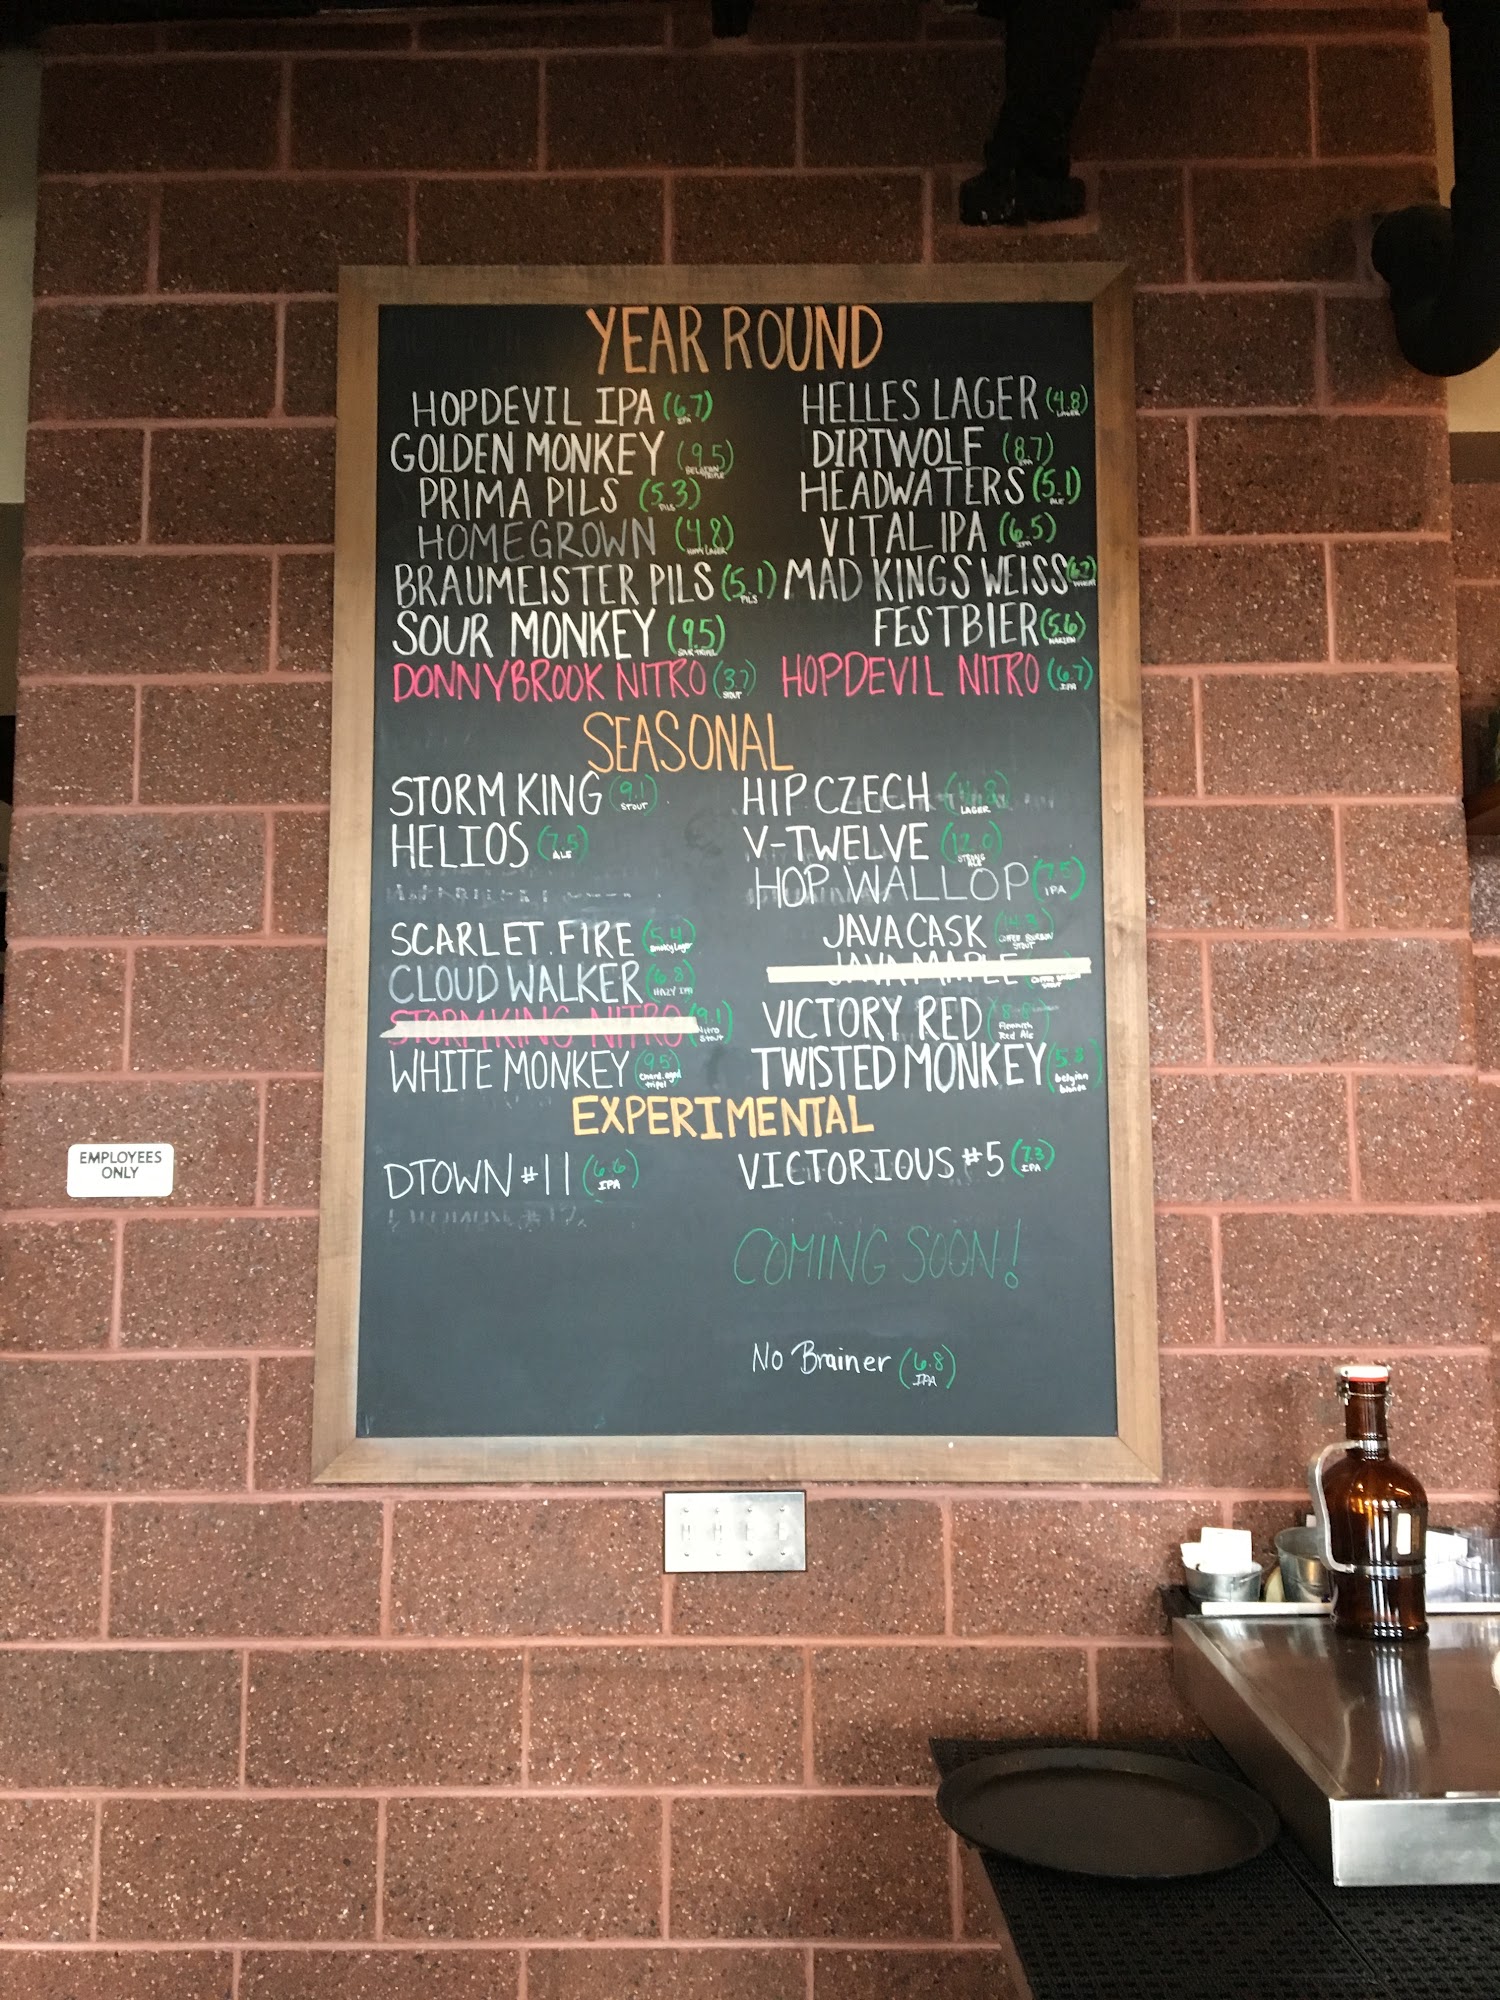 YEAR ROUND
HOPDEVIL IPA (6.7) IPA
HELLES LAGER (4.8) LAGER
GOLDEN MONKEY (9.5) BELGIAN TRIPLE
DIRTWOLF (8.7) IPA
PRIMA PILS (5.3) PILS
HEADWATERS (5.1) ALE
HOMEGROWN (4.8) HOPPY LAGER
VITAL IPA (6.5) IPA
BRAUMEISTER PILS (5.1) PILS
MAD KINGS WEISS (6.2) WHEAT
SOUR MONKEY (9.5) SOUR TRIPEL
FESTBIER (5.6) MARZEN
DONNYBROOK NITRO (3.7) STOUT
HOPDEVIL NITRO (6.7) IPA
SEASONAL
STORM KING (9.1) STOUT
HIP CZECH (4.8) LAGER
HELIOS (7.5) ALE
V-TWELVE (12.0) STRONG ALE
HOP WALLOP (7.5) IPA
SCARLET FIRE (5.4) Smokey Lager
JAVA CASK (14.3) COFFEE BOURBON STOUT
CLOUD WALKER (6.8) HAZY IPA
JAVA MAPLE
STORM KING NITRO (9.1) Nitro Stout
VICTORY RED (8.8) Flemish Red Ale
WHITE MONKEY (9.5) Chard. aged tripel
TWISTED MONKEY (5.8) belgian blonde
EXPERIMENTAL
DTOWN #11 (6.6) IPA
VICTORIOUS #5 (7.3) IPA
COMING SOON!
No Brainer (6.8) IPA
EMPLOYEES
ONLY